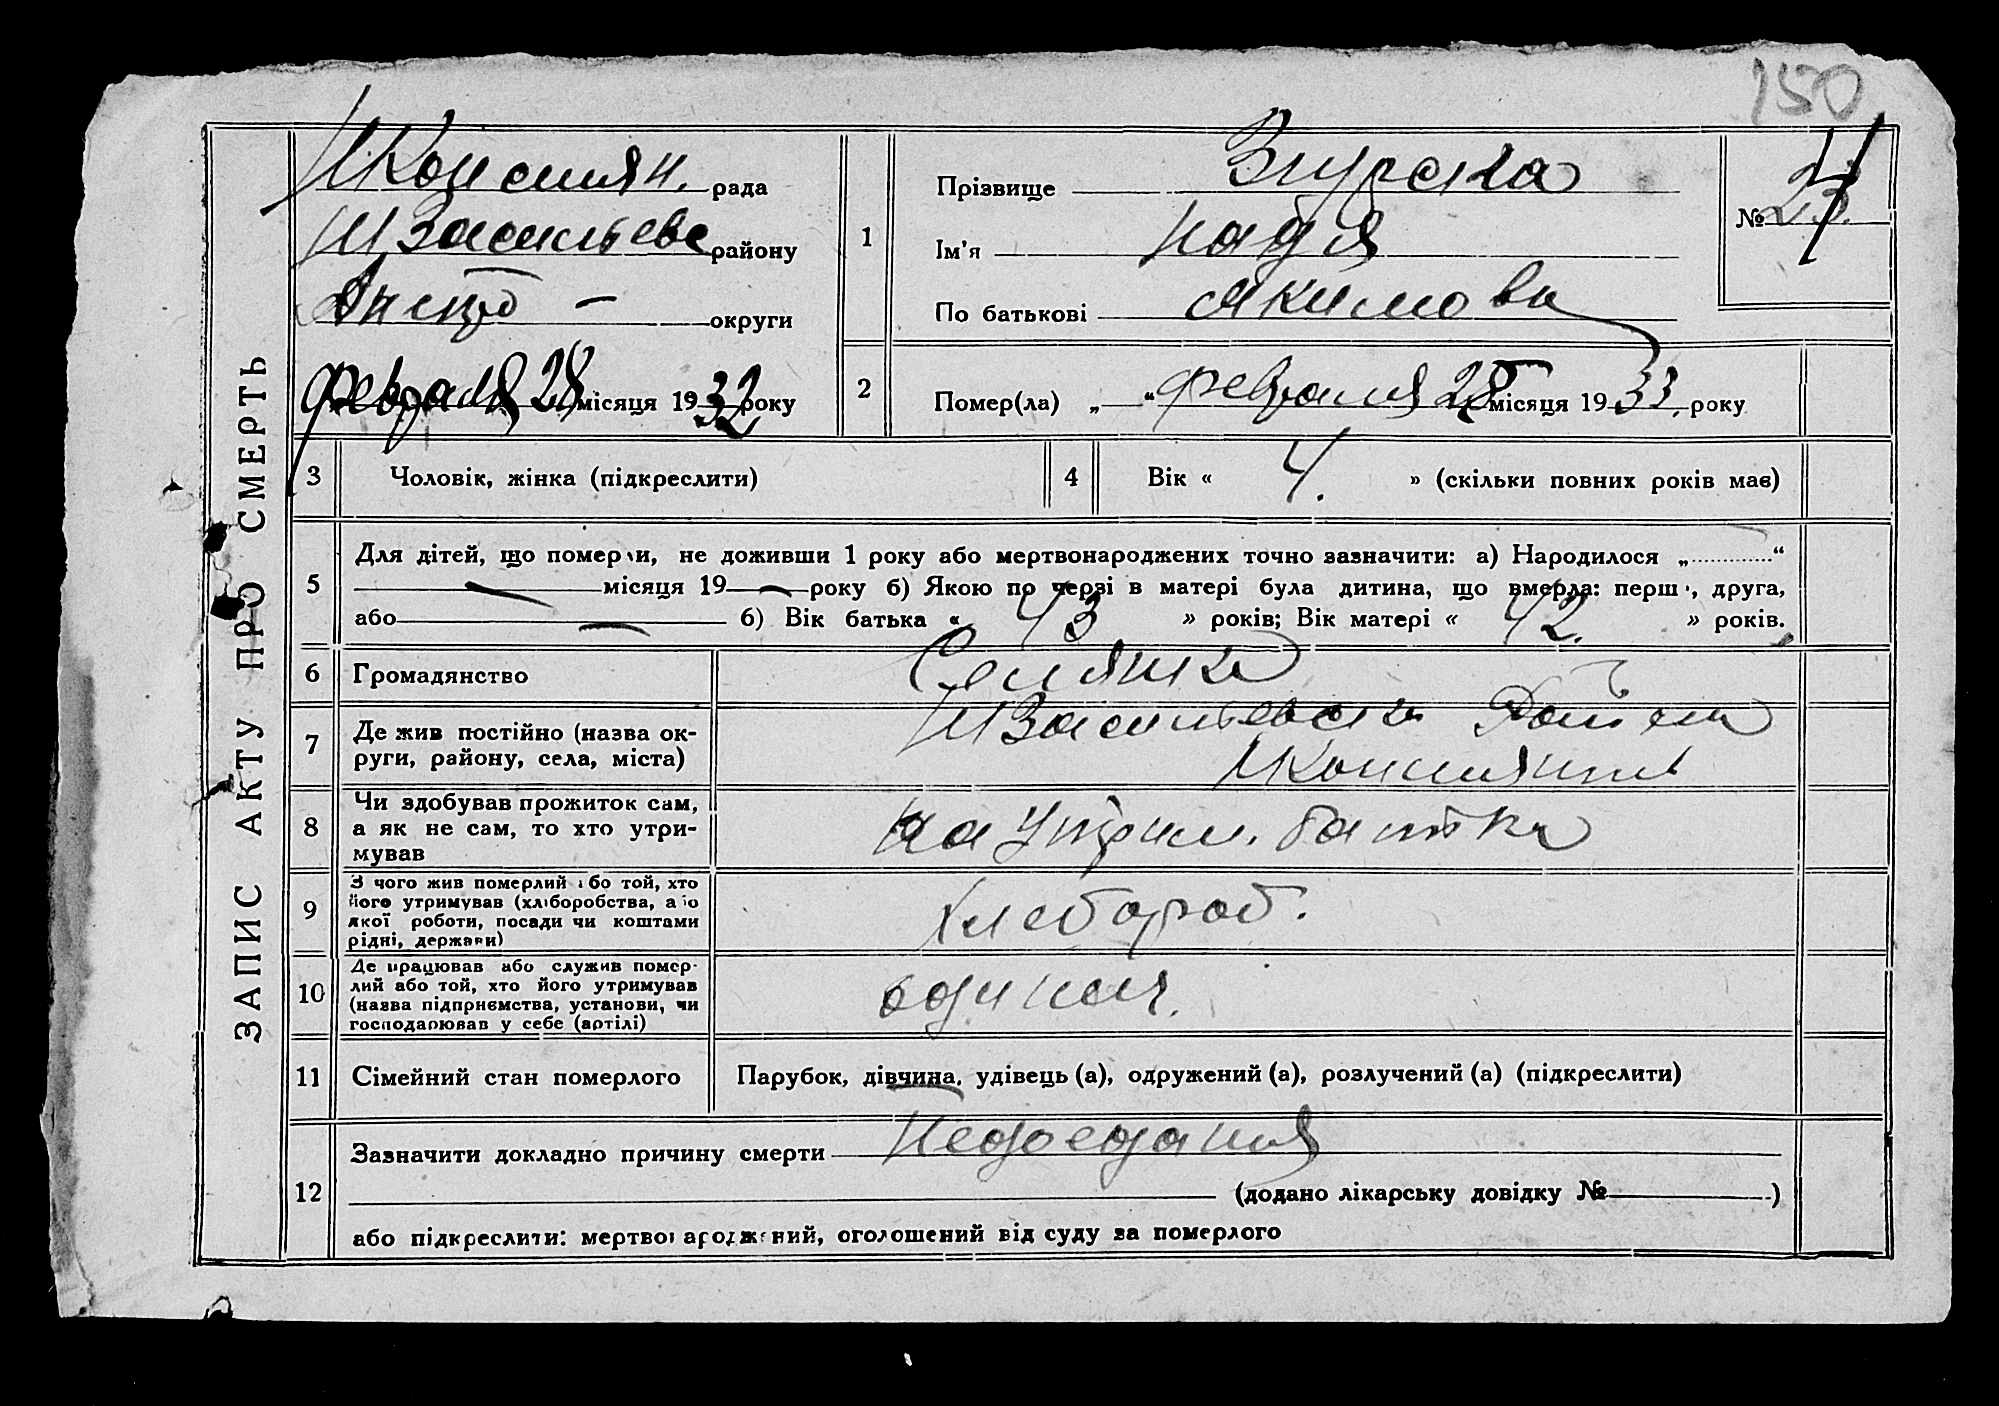 150
ЗАПИС АКТУ ПРО СМЕРТЬ
рада
району
округи
Февраля 28 місяця 1932 року
1
Прізвище Згурска
Ім'я Надя
По батькові Якимовн
№ 23. 4
2
Помер(ла) „ “ Февраля 28 місяця 1933. року
3
Чоловік, жінка (підкреслити)
4
Вік « 4. » (скільки повних років має)
5
Для дітей, що померли, не доживши 1 року або мертвонароджених точно зазначити: а) Народилося „ “
місяця 19 — року б) Якою по черзі в матері була дитина, що вмерла: перша, друга,
або — б) Вік батька « 43 » років; Вік матері « 42. » років.
6
Громадянство
Селянка
7
Де жив постійно (назва ок-
руги, району, села, міста)
8
Чи здобував прожиток сам,
а як не сам, то хто утри-
мував
на утрим. батька
9
З чого жив померлий або той, хто
його утримував (хліборобства, або
якої роботи, посади чи коштами
рідні, держави)
хлебороб.
10
Де працював або служив помер-
лий або той, хто його утримував
(назва підприємства, установи, чи
господарював у себе (артілі)
одинол.
11
Сімейний стан померлого
Парубок, дівчина, удівець (а), одружений (а), розлучений (а) (підкреслити)
12
Зазначити докладно причину смерти Недоедания
(додано лікарську довідку № )
або підкреслити: мертвонароджений, оголошений від суду за померлого